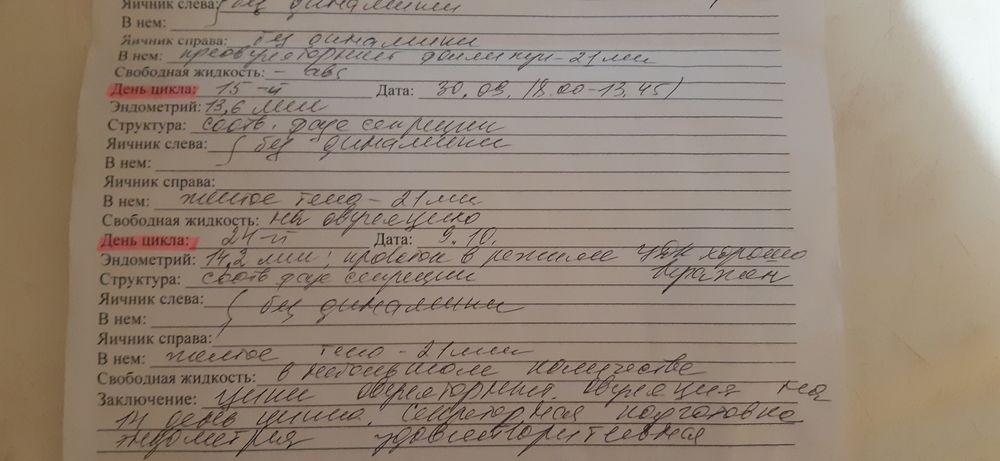 Яичник слева: без динамики
В нем:
Яичник справа: без динамики
В нем: преовуляторный фолликул - 21 мм
Свободная жидкость: - abs
День цикла: 15-й Дата: 30.09. (8.00-13.45)
Эндометрий: 13,6 мм
Структура: соотв. фазе секреции
Яичник слева: без динамики
В нем:
Яичник справа:
В нем: желтое тело - 21 мм
Свободная жидкость: на овуляцию
День цикла: 24-й Дата: 9.10.
Эндометрий: 14,2 мм, кровоток в режиме хорошо
Структура: соотв фазе секреции выражен
Яичник слева: без динамики
В нем:
Яичник справа:
В нем: желтое тело - 21 мм
Свободная жидкость: в небольшом количестве
Заключение: цикл овуляторный. овуляция на
14 день цикла. Секреторная подготовка
эндометрия удовлетворительная